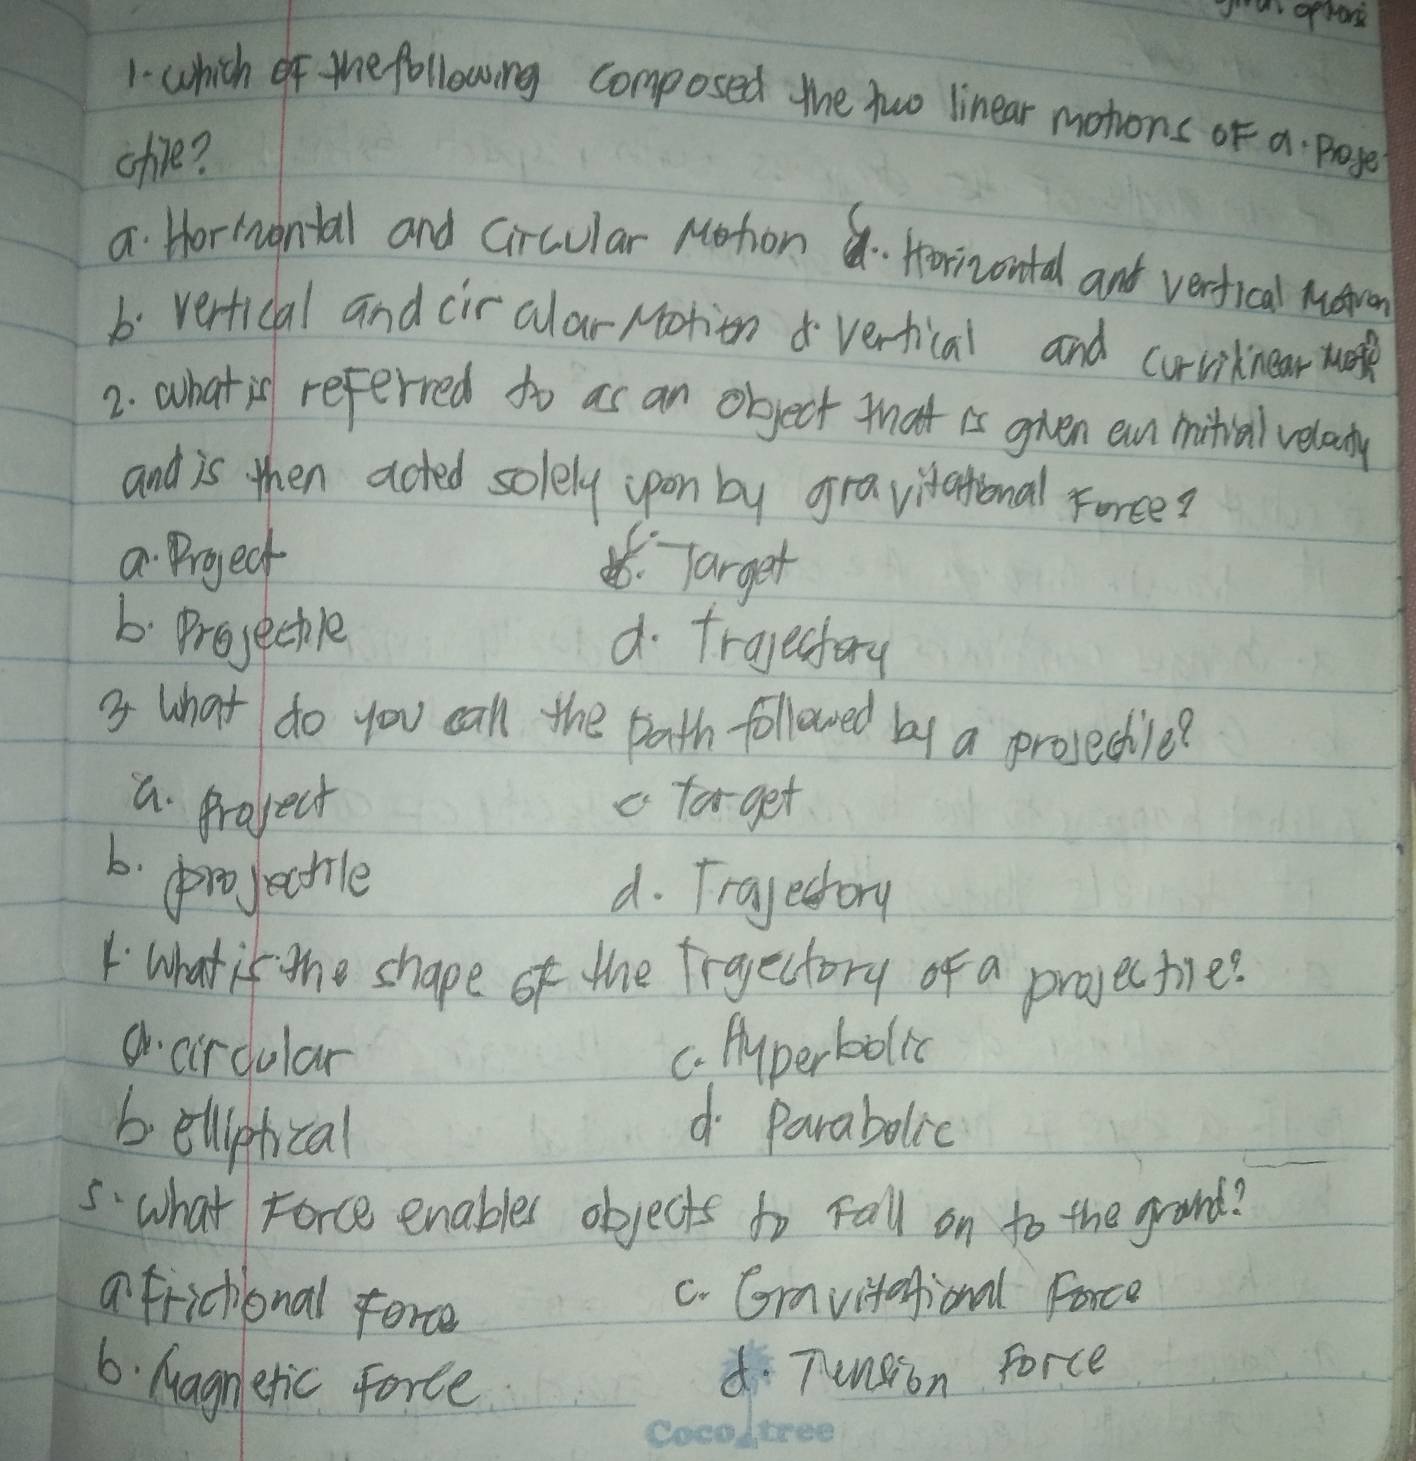 given options
1. Which of the following composed the two linear motions of a. Proje
ctile?
a. Horizontal and Circular Motion c. Horizontal and vertical Motion
b. vertical and circular Motion d. vertical and curvilinear
2. What is referred to as an object that is given an initial velocity
and is then acted solely upon by gravitational Force?
a. Project c. Target
b. Projectile d. Trajectory
3. What do you call the path followed by a projectile?
a. Project c. Target
b. projectile d. Trajectory
4. What is the shape of the Trajectory of a projectile?
a. circular c. Hyperbolic
b. elliptical d. Parabolic
5. What Force enables objects to Fall on to the ground?
a Frictional Force c. Gravitational Force
b. Magnetic Force d. Tension Force
Coco tree